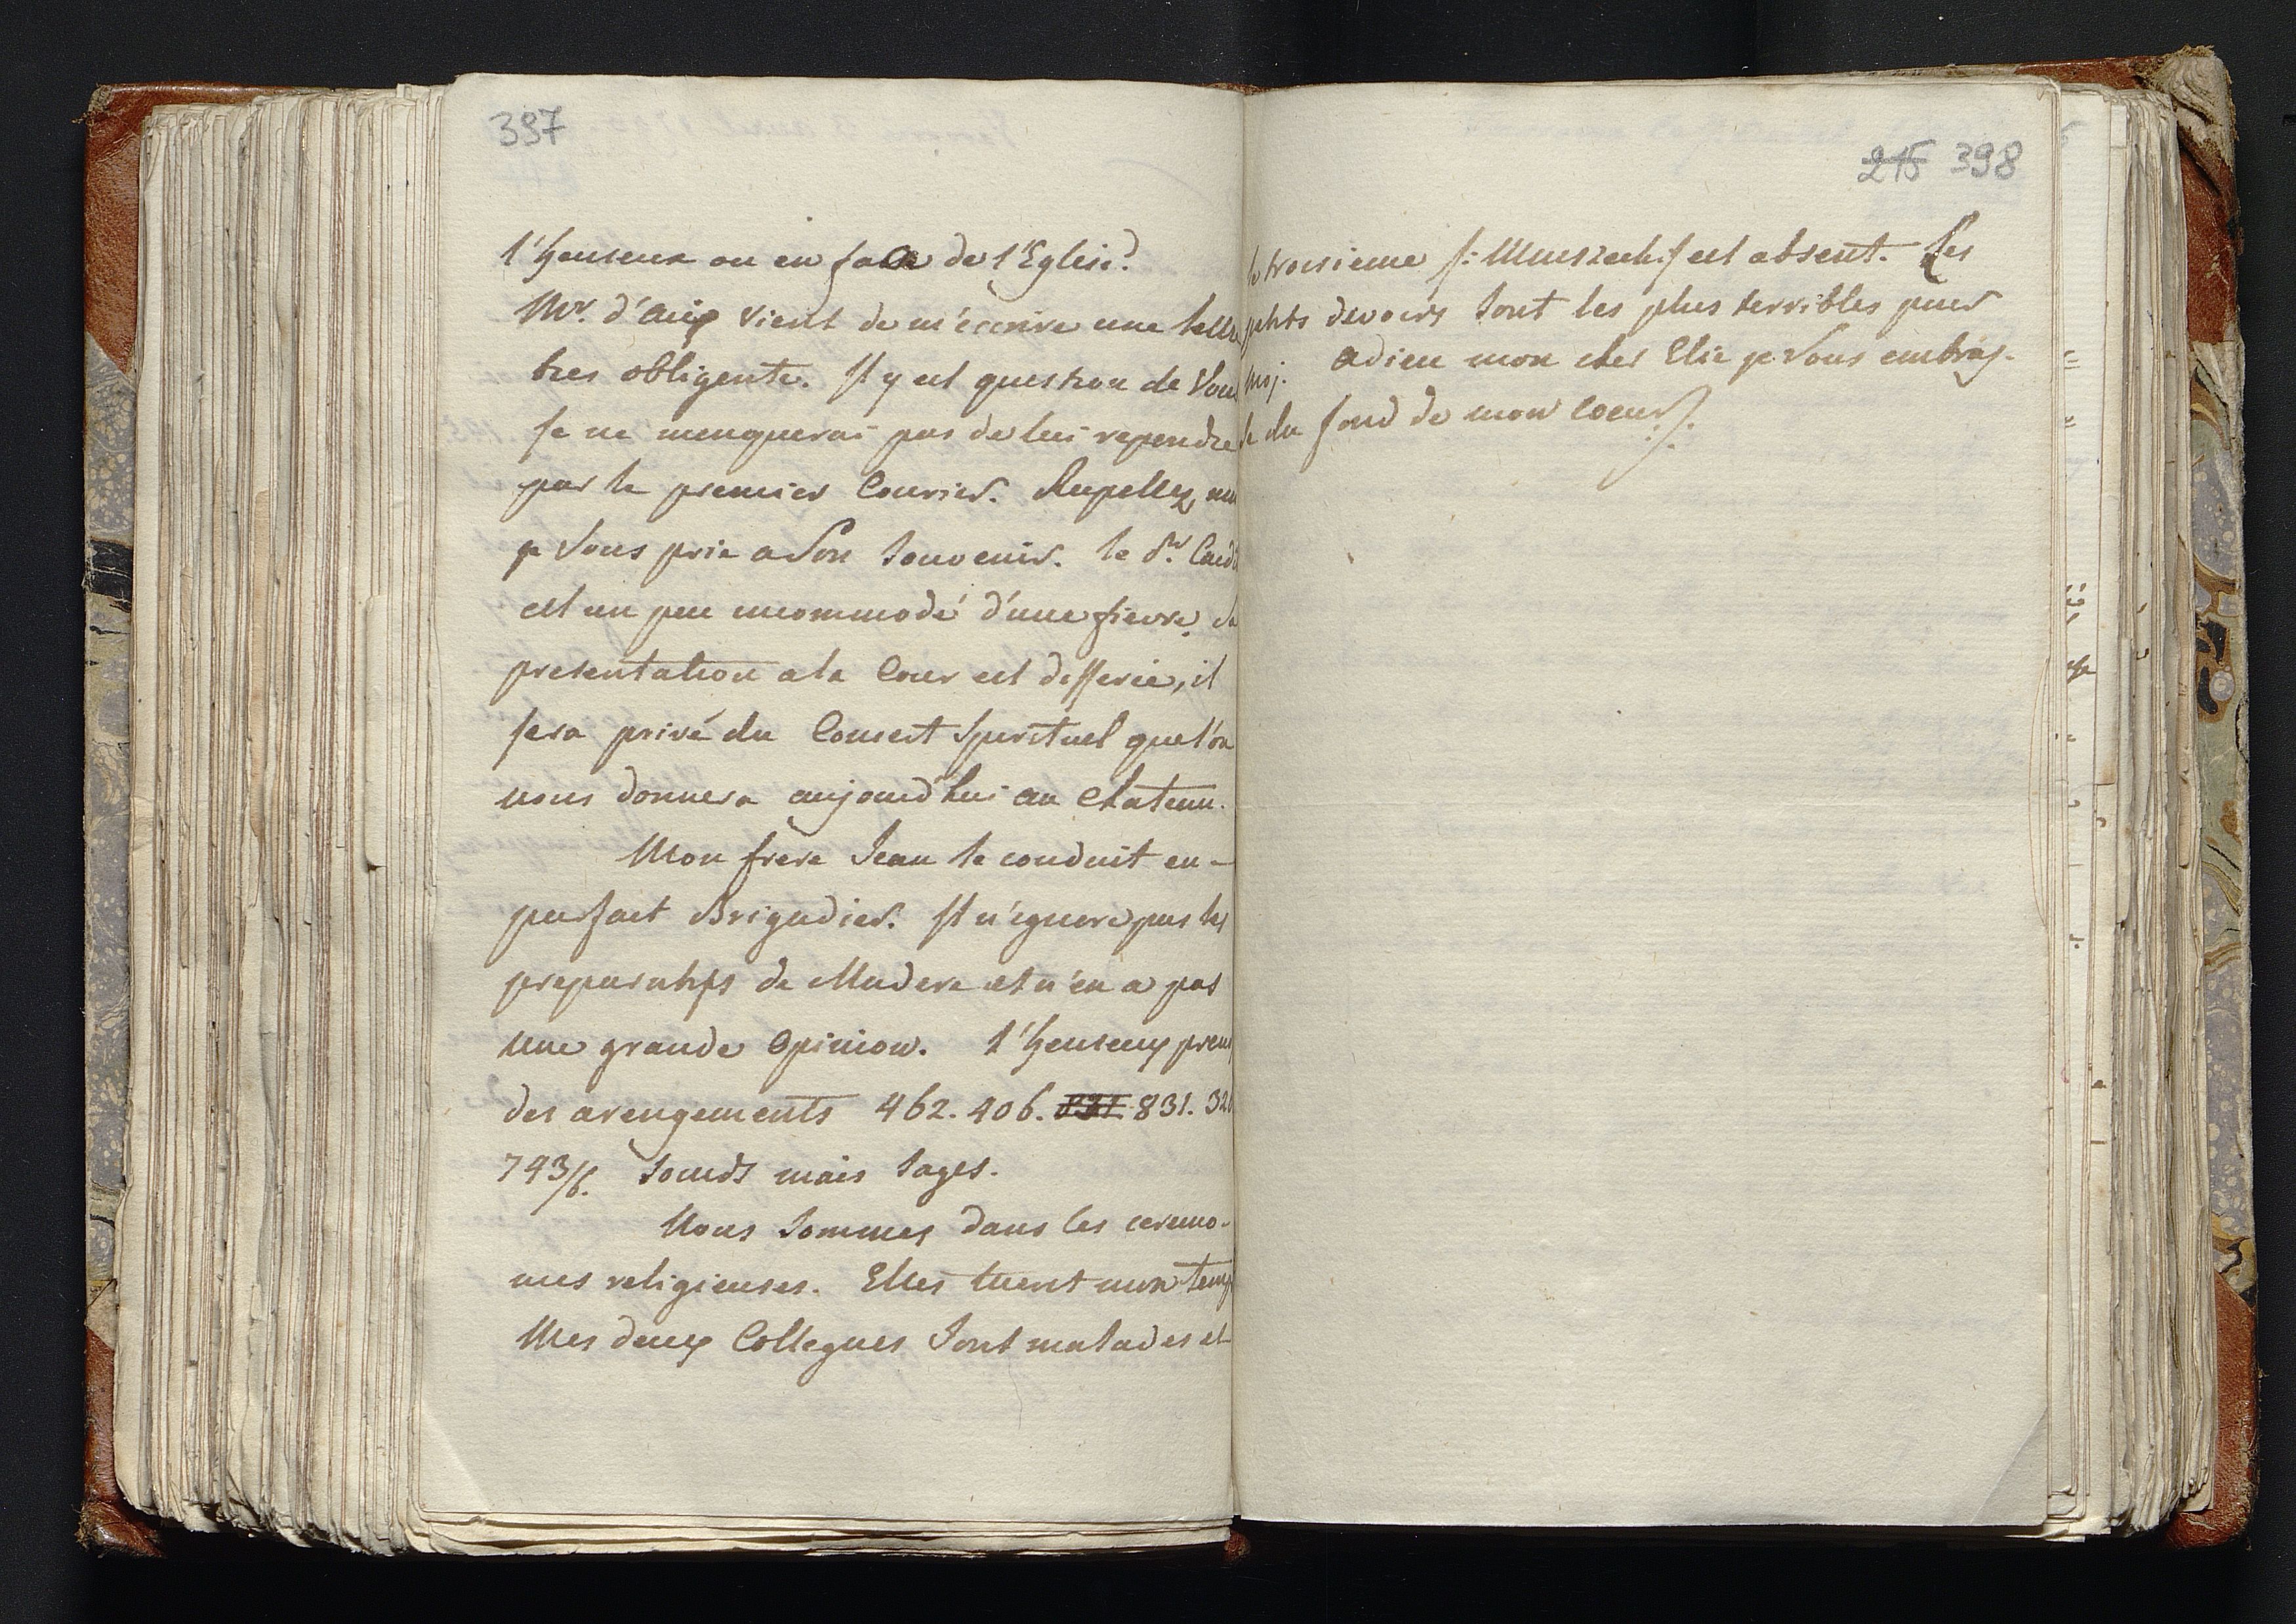 397
l'heureux ou en face de l'Eglise?
Mr. d'Aix vient de m'ecrire une lettre
tres obligente. Il y est question de Vous
Je ne menquerai pas de lui rependre
par le premier Courier. Rapellez
je Vous prie a Son Souvenir. le
est un peu incommodé d'une fievre, sa
presentation a la Cour est differée, il
sera privé du Consert Spirituel que l'on
nous donnera aujourd'hui au Chateau.
Mon frere Jean le conduit en-
parfait Brigadier. Il n'ignore pas les
preparatifs de Madere et n'en a pas
une grande Opinion. l'heureux prens
des arengements 462. 406. 831. 831.
793/6. Sourds mais Sages.
Nous Sommes dans les ceremo-
nies religieuses. Elles tuent mon temps
Mes deux Collegues Sont malades et
215 398
le troisieme /: Mniszech :/ est absent. Les
petits devoirs Sont les plus terribles pour
moj. Adieu mon cher Elie je Vous embras-
se du fond de mon Coeur /.